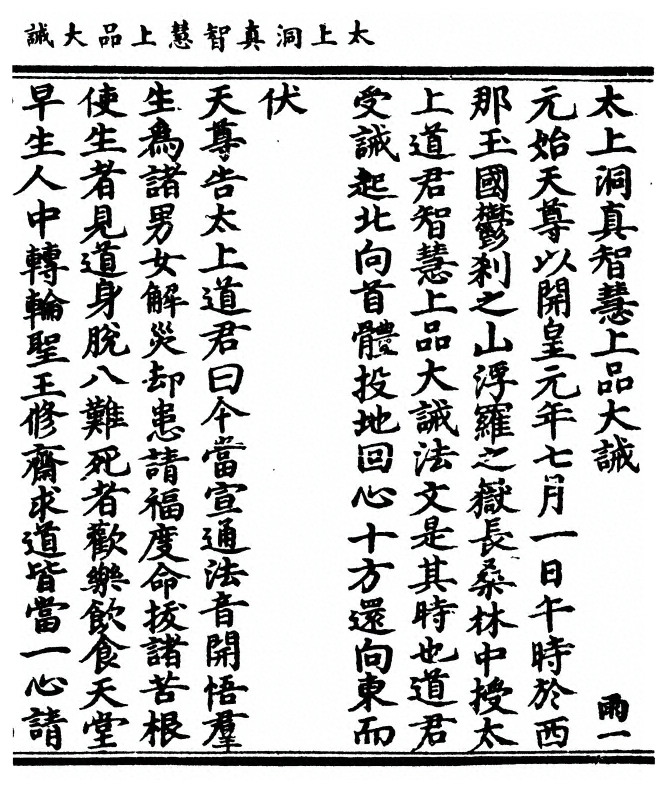 太上洞真智慧上品大誡
太上洞真智慧上品大誡 雨一
元始天尊以開皇元年七月一日午時於西
那玉國鬱刹之山浮羅之嶽長桑林中授太
上道君智慧上品大誡法文是其時也道君
受誡起北向首體投地回心十方還向東而
伏
天尊告太上道君曰今當宣通法音開悟羣
生爲諸男女解災却患請福度命拔諸苦根
使生者見道身脫八難死者歡樂飲食天堂
早生人中轉輪聖王修齋求道皆當一心請